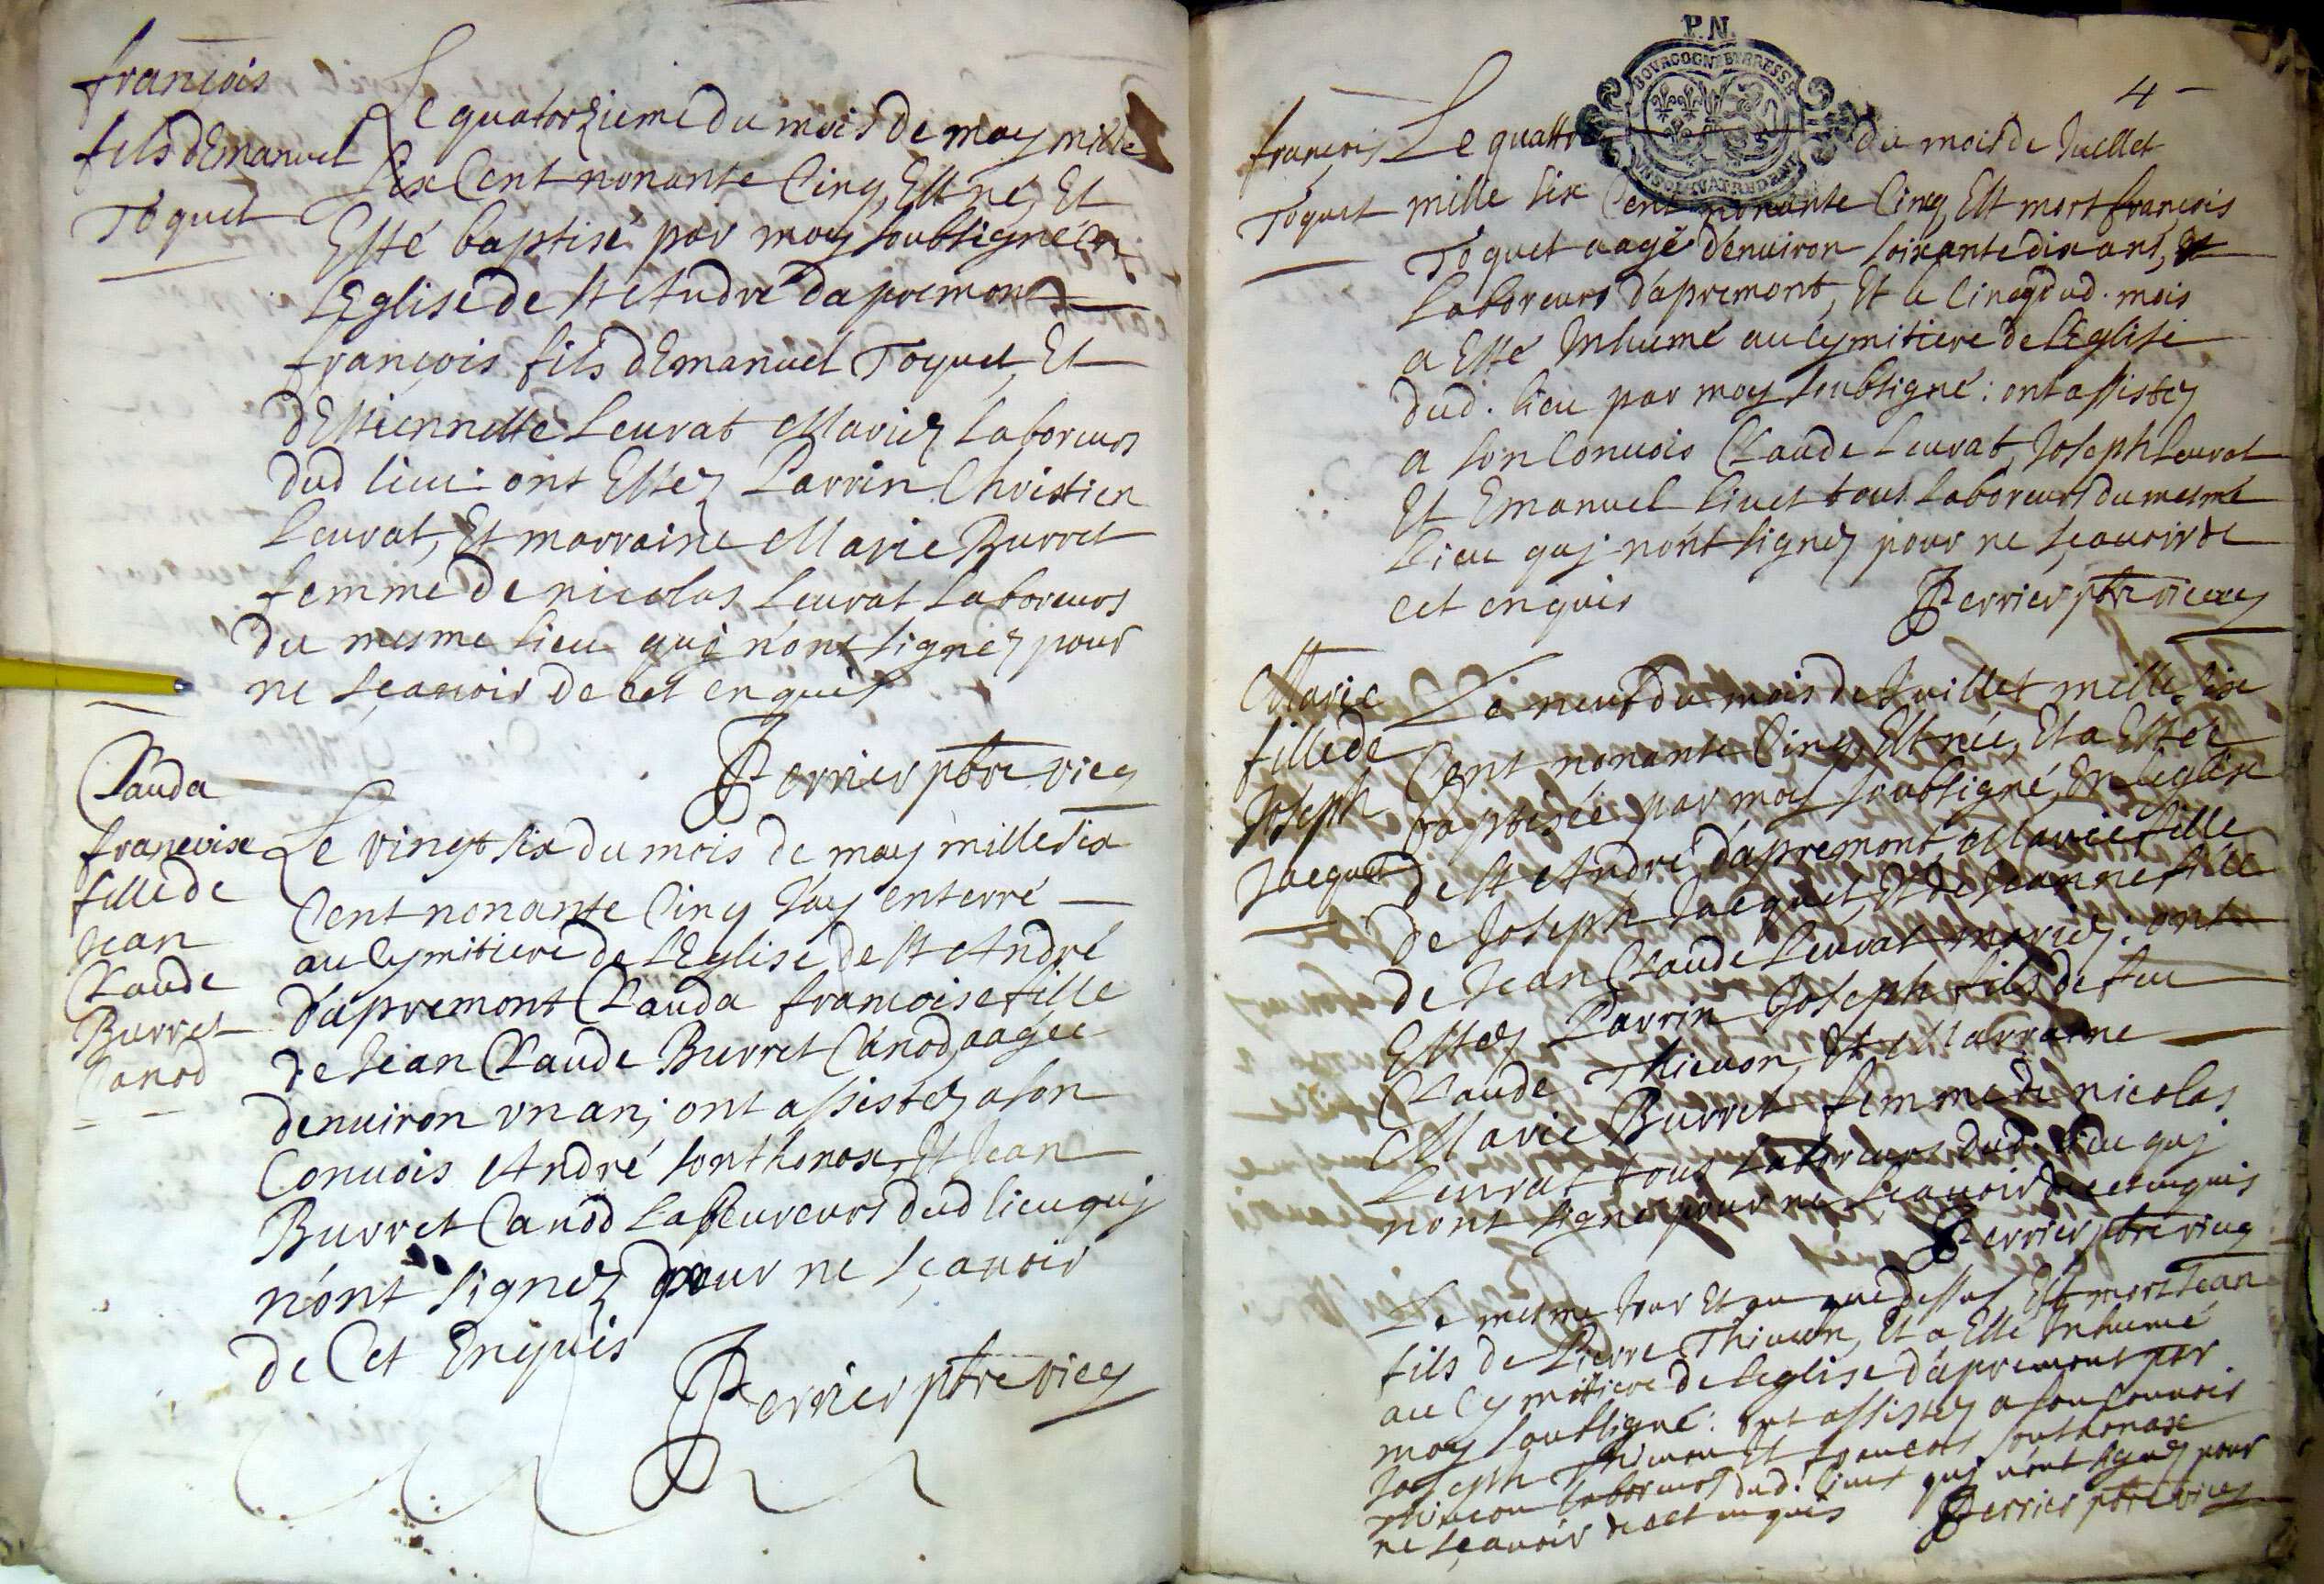 françois
fils dEmanuel
Toquet
Le quatorzieme du mois de may mille
six Cent nonante Cinq, Est né, Et
Esté baptisé par moy soubsigné en
LEglise de st André dapremont
françois fils dEmanuel Toquet, Et
dEstiennette Leurat Mariez Laboreurs
dud lieu: ont Estez Parrin Christien
Leurat, Et marraine Marie Burret
femme de nicolas Leurat Laboreurs
du mesme lieu quj n'ont signez pour
ne sçauoir de cet enquis
Perrier pbre vicq
Clauda
francoise
fille de
Jean
Claude
Burret
Canod
Le vingt six du mois de may mille six
Cent nonante Cinq J'ay enterré
au Cymitiere de LEglise de st André
d'apremont Clauda francoise fille
de Jean Claude Burret Canod, aagée
denuiron vn an; ont assistez a son
Conuois André Sonthonax, Et Jean
Burret Canod Labeureurs dud lieu quj
n'ont signez pour ne sçauoir
de Cet Enquis
Perrier pbre vicq
P.N.
BOVRGOGNE BRESSE
4
françois
Toquet
Le quattr du mois de Juillet
mille six Cent nonante Cinq, Est mort françois
Toquet aagé d'enuiron soixante dix ans,
Laboreurs d'apremont, Et le cinq dud. mois
a Esté Inhumé au Cymitiere de LEglise
dud. lieu par moy soubsigné: ont assistez
a son Conuois Claude Leurat, Joseph Leurat
Et Emanuel Liuet tous Laboreurs du mesme
Lieu quj n'ont signez pour ne sçauoir de
cet enquis
Perrier pbre vicq
Marie
fille de
Joseph
Jacquet
Le neuf du mois de Juillet mille six
Cent nonante Cinq, Est née, Et a Estée
baptisée par moy soubsigné, En leglise
de st André d'apremont, Marie fille
de Joseph Jacquet, Et de Jeanne fille
de Jean Claude Leurat mariez: ont
Estez Parrin Joseph fils de feu
Claude Thieuon, Et Marraine
Marie Burret femme de nicolas
Leurat tous Laboreurs dud. lieu quj
n'ont signe pour ne sçauoir de cet enquis
Perrier pbre vicq
Le mesme Jour Et an que dessus, Est mort Jean
fils de Pierre Thieuon, Et a Esté Inhumé
au Cymitiere de Leglise d'apremont par
moy soubsigné: ont assistez a son Conuois
Joseph Thieuon Et francois Sonthonax
Thieuon Laboreurs dud. lieu quj n'ont signez pour
ne sçauoir de cet enquis
Perrier pbre vicq